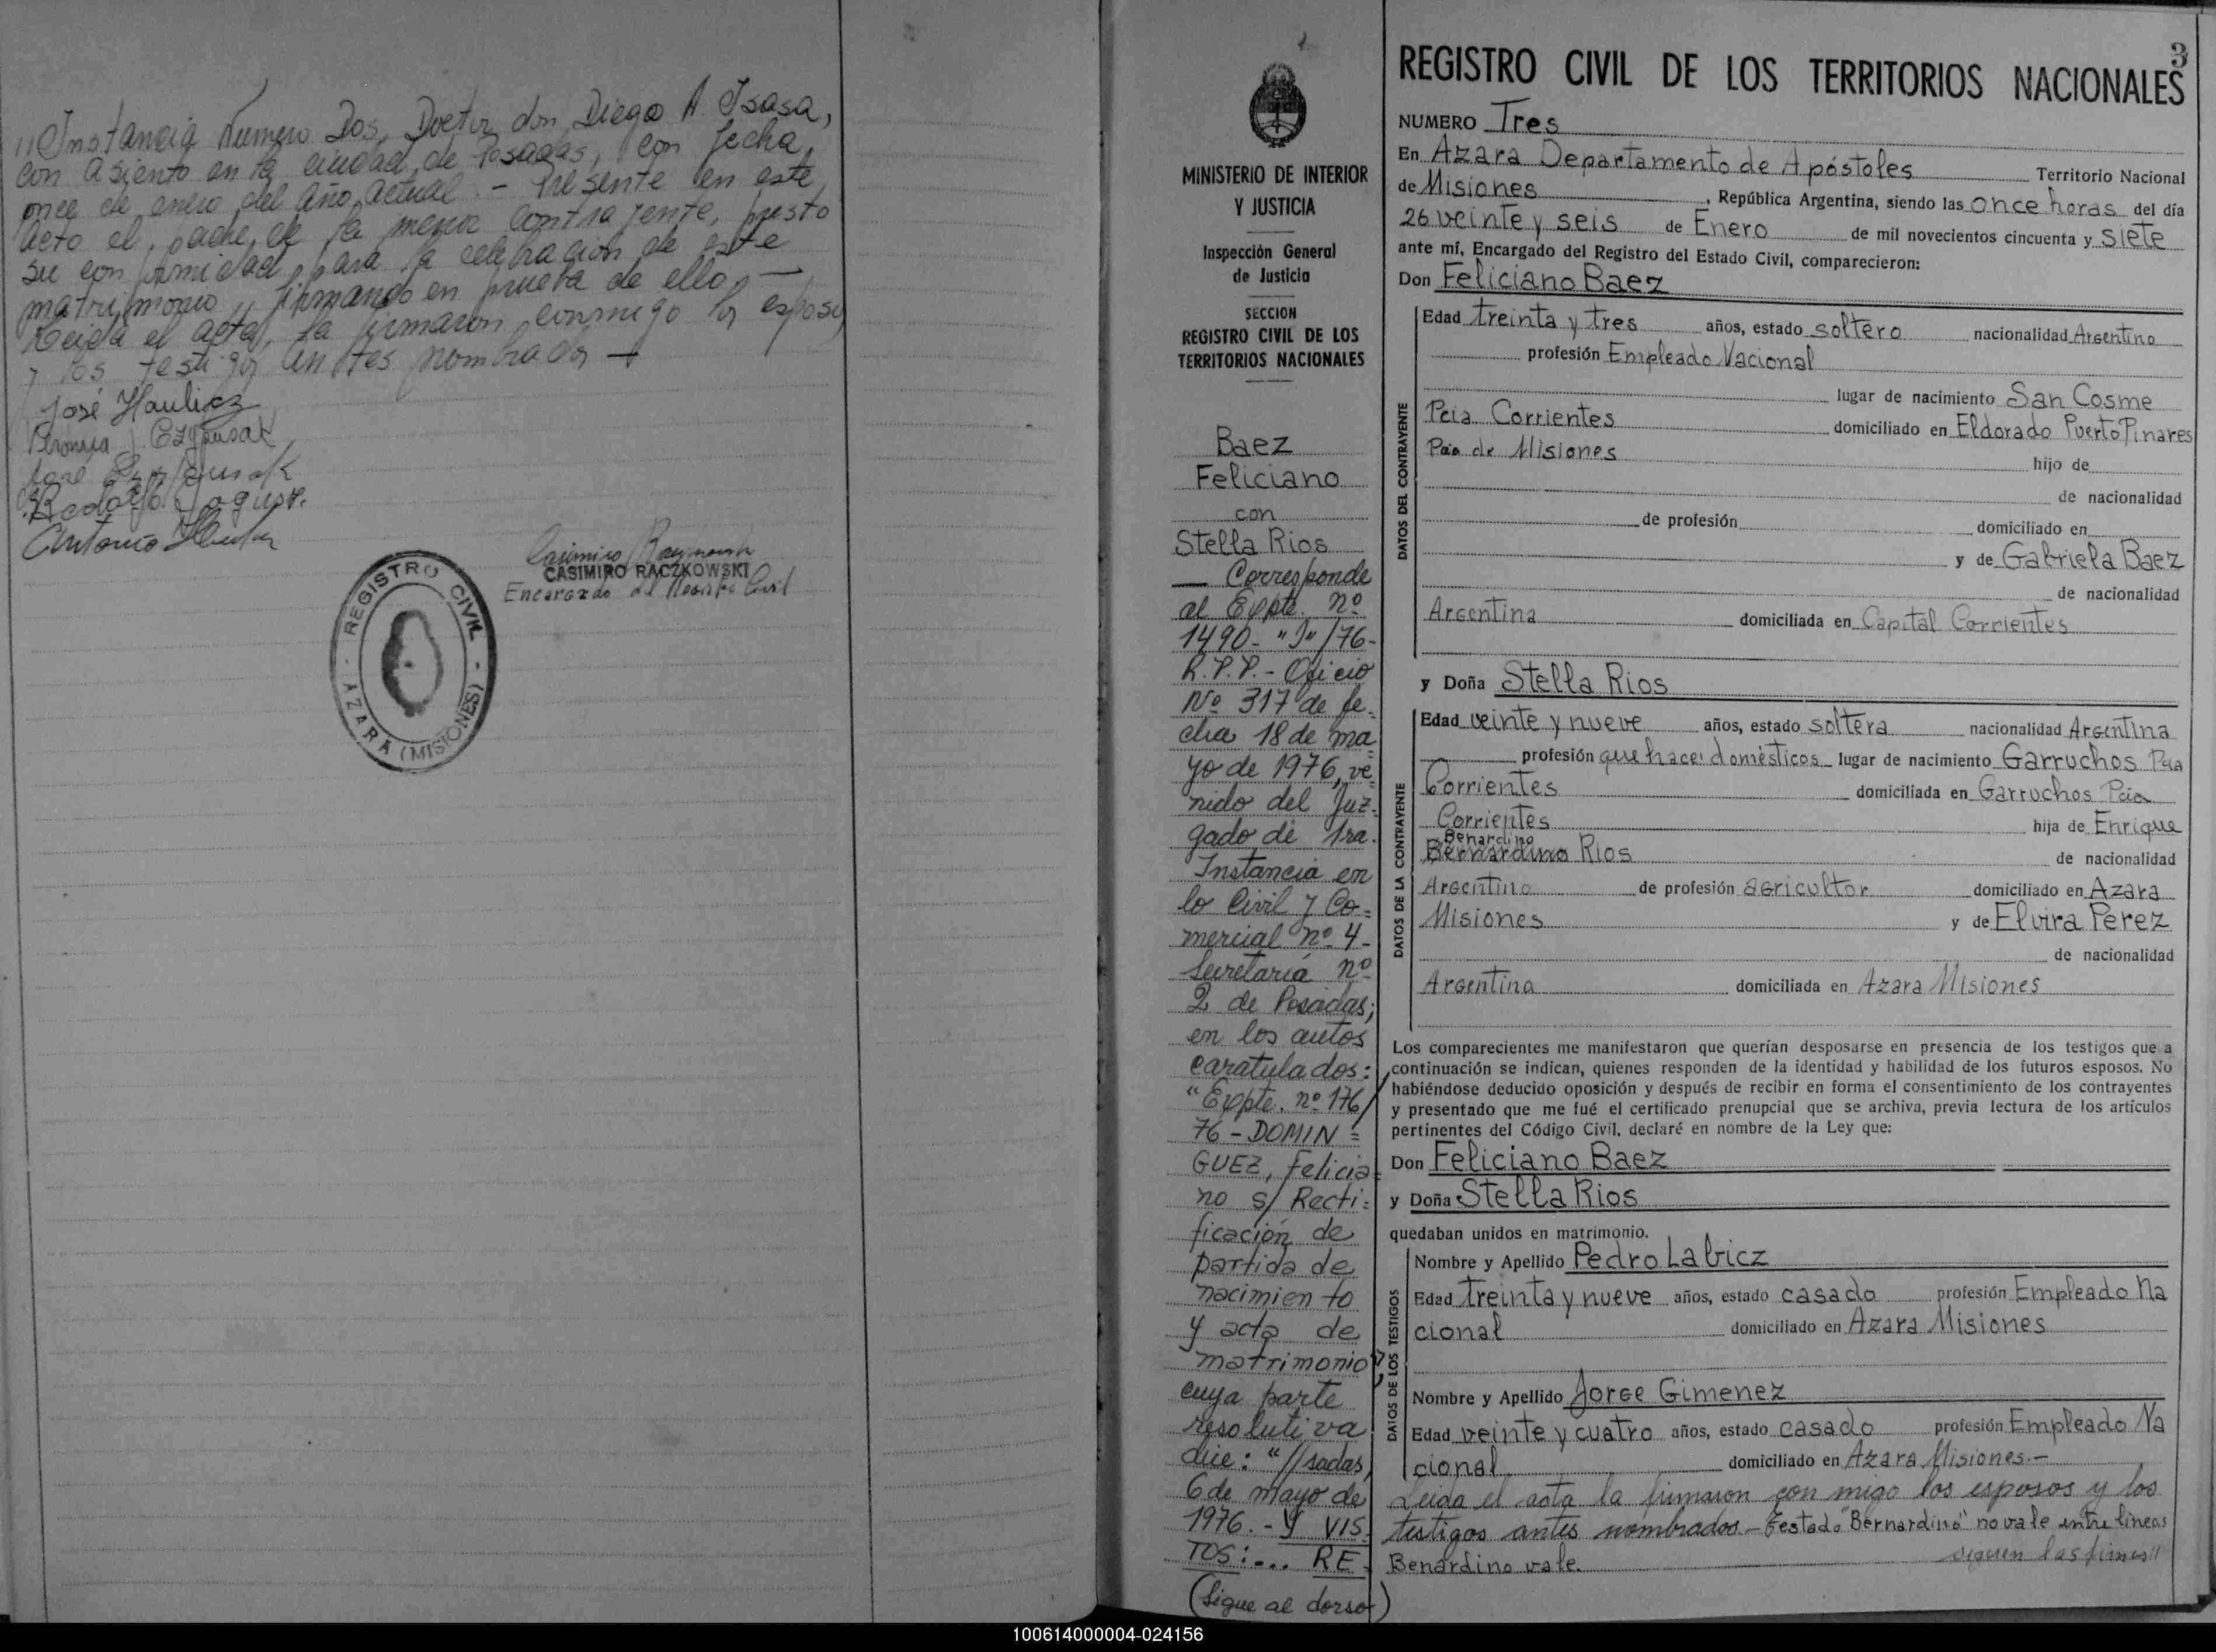 // Instancia Numero Dos, Doctor don Diego A. Isasa,
con asiento en la ciudad de Posadas, con fecha
once de enero del año actual.- Presente en este
acto el padre de la menor contrayente, presto
su conformidad para la celebración de este
matrimonio, firmando en prueba de ello.—
Leida el acta, la firmaron conmigo los esposos
y los testigos antes nombrados —
José Haulicz
José
Rodolfo
Antonio
Casimiro
CASIMIRO RACZKOWSKI
Encargado del Registro Civil
REGISTRO CIVIL - AZARA (MISIONES) -
3
MINISTERIO DE INTERIOR
Y JUSTICIA
Inspección General
de Justicia
SECCION
REGISTRO CIVIL DE LOS
TERRITORIOS NACIONALES
Baez
Feliciano
con
Stella Rios
— Corresponde
al Expte. nº
1490- "J"/76-
R.P.P.- Oficio
Nº 317 de fe=
cha 18 de ma=
yo de 1976, ve=
nido del Juz=
gado de 1ra.
Instancia en
lo Civil y Co=
mercial nº 4-
Secretaría nº
2 de Posadas;
en los autos
caratulados:
"Expte. nº 176/
76 - DOMIN=
GUEZ, Felicia=
no s/ Recti=
ficación de
partida de
nacimiento
y acta de
matrimonio";
cuya parte
resolutiva
dice: "//sadas,
6 de mayo de
1976.- Y VIS=
TOS:... RE=
(Sigue al dorso)
REGISTRO CIVIL DE LOS TERRITORIOS NACIONALES
NUMERO Tres
En Azara Departamento de Apóstoles Territorio Nacional
de Misiones, República Argentina, siendo las once horas del día
26 veinte y seis de Enero de mil novecientos cincuenta y siete
ante mí, Encargado del Registro del Estado Civil, comparecieron:
Don Feliciano Baez
DATOS DEL CONTRAYENTE
Edad treinta y tres años, estado soltero nacionalidad Argentino
profesión Empleado Nacional
lugar de nacimiento San Cosme
Pcia Corrientes domiciliado en Eldorado Puerto Pinares
Pcia de Misiones hijo de
de nacionalidad
de profesión domiciliado en
y de Gabriela Baez
de nacionalidad
Argentina domiciliada en Capital Corrientes
y Doña Stella Rios
DATOS DE LA CONTRAYENTE
Edad veinte y nueve años, estado soltera nacionalidad Argentina
profesión que hacer domésticos lugar de nacimiento Garruchos Pcia
Corrientes domiciliada en Garruchos Pcia
Corrientes hija de Enrique
Benardino
Bernardino Rios de nacionalidad
Argentino de profesión agricultor domiciliado en Azara
Misiones y de Elvira Perez
de nacionalidad
Argentina domiciliada en Azara Misiones
Los comparecientes me manifestaron que querían desposarse en presencia de los testigos que a
continuación se indican, quienes responden de la identidad y habilidad de los futuros esposos. No
habiéndose deducido oposición y después de recibir en forma el consentimiento de los contrayentes
y presentado que me fué el certificado prenupcial que se archiva, previa lectura de los artículos
pertinentes del Código Civil, declaré en nombre de la Ley que:
Don Feliciano Baez
y Doña Stella Rios
quedaban unidos en matrimonio.
DATOS DE LOS TESTIGOS
Nombre y Apellido Pedro Labicz
Edad treinta y nueve años, estado casado profesión Empleado Na
cional domiciliado en Azara Misiones
Nombre y Apellido Jorge Gimenez
Edad veinte y cuatro años, estado casado profesión Empleado Na
cional domiciliado en Azara Misiones.-
Leida el acta la firmaron con migo los esposos y los
testigos antes nombrados - Testado "Bernardino" no vale entre lineas
Benardino vale. siguen las firmas//
100614000004-024156